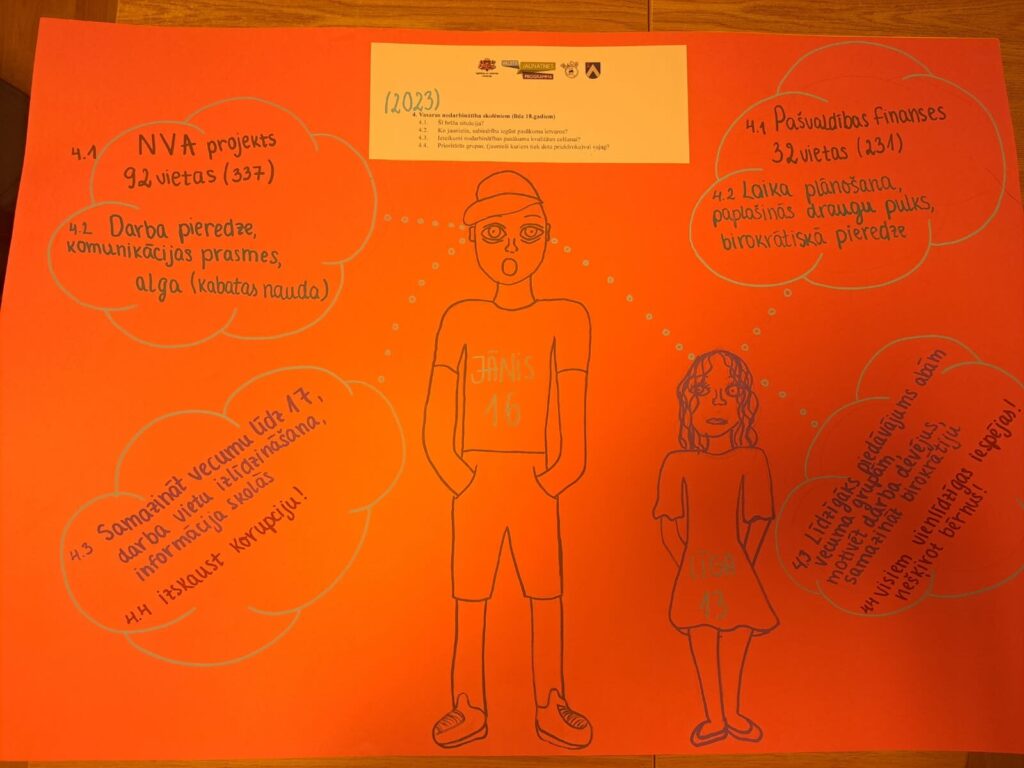 JAUNATNES
PROGRAMMA
(2023)
4. Vasaras nodarbinātība skolēniem (līdz 18.gadiem)
4.1. Šī brīža situācija?
4.2. Ko jaunietis, sabiedrība iegūst pasākuma ietvaros?
4.3. Ieteikumi nodarbinātības pasākuma kvalitātes celšanai?
4.4. Prioritārās grupas, (jaunieši kuriem tiek dota priekšroka)vai vajag?
4.1 NVA projekts
92 vietas (337)
4.2 Darba pieredze,
komunikācijas prasmes,
alga (kabatas nauda)
4.1 Pašvaldības finanses
32 vietas (231)
4.2 Laika plānošana,
paplašinās draugu pulks,
birokrātiskā pieredze
JĀNIS
16
4.3 Samazināt vecumu līdz 17,
darba vietu izlīdzināšana,
informācija skolās
4.4 izskaust korupciju!
LĪGA
13
4.3 Līdzīgāks piedāvājums abām
vecuma grupām,
motivēt darba dēvējus,
samazināt birokrātiju
4.4 visiem vienlīdzīgas iespējas!
nešķirot bērnus!